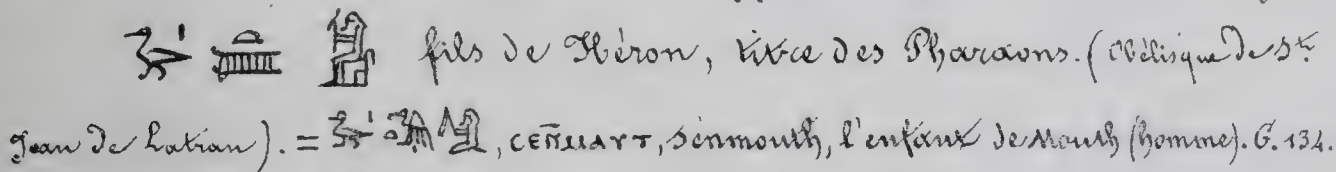 fils de Héron, titre des Pharaons. (Obélisque de St.
Jean de Latran). = , ⲤⲈⲚ̄ⲘⲀⲨⲦ, Sénmouth, l'enfant de Mouth (homme). G. 134.